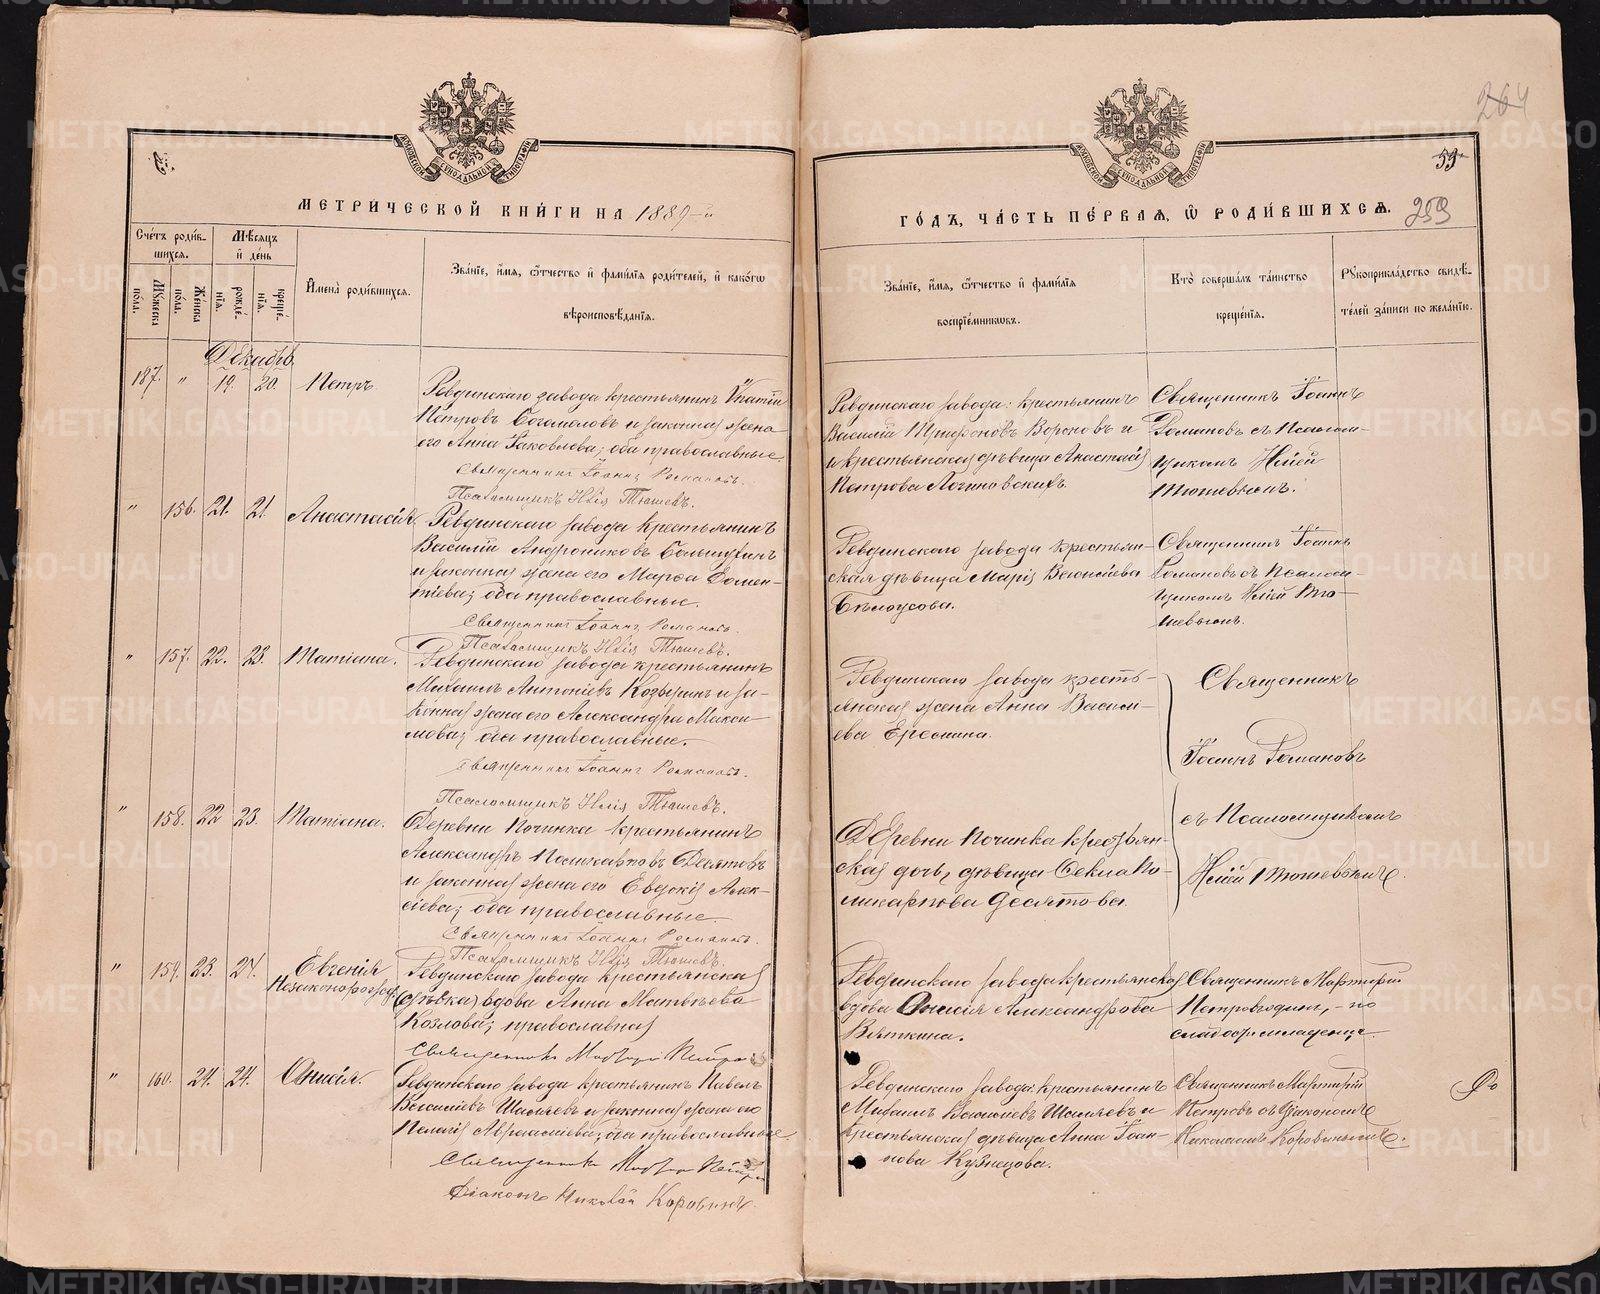 264
59
259
МОСКОВСКОЙ СѴНОДАЛЬНОЙ ТИПОГРАФІИ
МЕТРИЧЕСКОЙ КНИГИ НА 1889-й
Счетъ родив-
шихся.
Мѣсяцъ
и день
Мужеска
пола.
Женска
пола.
рожде-
нія.
креще-
нія.
Имена родившихся.
Званіе, имя, отчество и фамилія родителей, и какого
вѣроисповѣданія.
Декабрь.
187. " 19. 20. Петръ
Ревдинскаго завода крестьянинъ Игнатій
Петровъ Богомоловъ и законная жена
его Анна Яковлева; оба православные.
Священникъ Іоаннъ Романовъ.
Псаломщикъ Илія Тюшевъ.
" 156. 21. 21. Анастасія.
Ревдинскаго завода крестьянинъ
Василій Андрониковъ
и законная жена его Марѳа Домен-
тіева; оба православные.
Священникъ Іоаннъ Романовъ.
Псаломщикъ Илія Тюшевъ.
" 157. 22. 23. Татіана.
Ревдинскаго завода крестьянинъ
Михаилъ Антоніевъ Козыринъ и за-
конная жена его Александра Макси-
мова; оба православные.
Священникъ Іоаннъ Романовъ.
Псаломщикъ Илія Тюшевъ.
" 158. 22 23. Татіана.
Деревни Починка крестьянинъ
Александръ Поликарповъ Десятовъ
и законная жена его Евдокія Алек-
сіева; оба православные.
Священникъ Іоаннъ Романовъ.
Псаломщикъ Илія Тюшевъ.
" 159. 23. 24. Евгенія
Незаконорожд.
Ревдинскаго завода крестьянская
(дѣвка) вдова Анна Матвѣева
Козлова; православная
Священникъ Мартирій Петровъ
" 160. 24. 24. Анисія.
Ревдинскаго завода крестьянинъ Павелъ
Васильевъ Шаляевъ и законная жена его
Пелагія; оба православные.
Священникъ Мартирій Петровъ
Діаконъ Николай Коровинъ.
ГОДЪ, ЧАСТЬ ПЕРВАЯ, Ѡ РОДИВШИХСЯ.
Званіе, имя, отчество и фамилія
воспріемниковъ.
Кто совершалъ таинство
крещенія.
Рукоприкладство свидѣ-
телей записи по желанію.
Ревдинскаго завода: крестьянинъ
Василій Трифоновъ Вороновъ и
крестьянская дѣвица Анастасія
Петрова Логиновскихъ
Священникъ Іоаннъ
Романовъ съ Псалом-
щикомъ Иліей
Тюшевымъ.
Ревдинскаго завода крестьян-
ская дѣвица Марія Васильева
Бѣлоусова.
Священникъ Іоаннъ
Романовъ съ Псалом-
щикомъ Иліей Тю-
шевымъ.
Ревдинскаго завода кресть-
янская жена Анна Василь-
ева Ересьина.
Священникъ
Іоаннъ Романовъ
съ Псаломщикомъ
Иліей Тюшевымъ.
Деревни Починка крестьян-
ская дочь, дѣвица Ѳекла По-
ликарпова Десятова.
Ревдинскаго завода крестьянская
вдова Анисія Александрова
Вяткина.
Священникъ Мартирій
Петровъ одинъ, - по
слабости младенца.
Ревдинскаго завода: крестьянинъ
Михаилъ Васильевъ Шаляевъ и
крестьянская дѣвица Анна Іоан-
нова Кузнецова.
Священникъ Мартирій
Петровъ съ Діакономъ
Николаемъ Коровинымъ.
METRIKI.GASO-URAL.RU